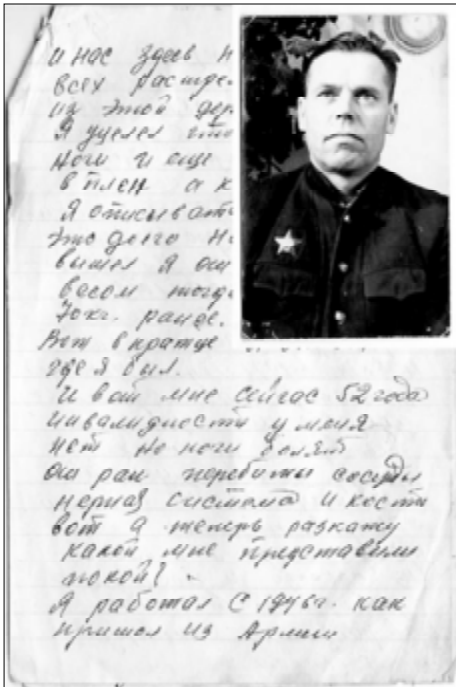 и нас здесь н
всех расстре
из этой дер
Я уцелел
ноги и еще
в плен а к
Я описывать
это долго н
вышел я
весом тогда
70 кг. ранее.
Вот вкратце
где я был.
И вот мне сейчас 52 года
инвалидности у меня
нет но ноги болят
от ран перебиты сосуды
нервная система и кости
вот а теперь разкажу
какой мне представили
покой?
Я работал с 1946 г. как
пришол из Армии